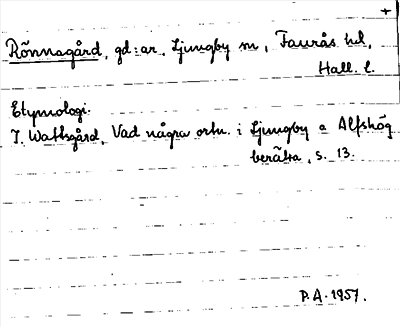 +
Rönnagård, gd:ar, Ljungby sn, Faurås hd,
Hall. l.
Etymologi.
J. Wattsgård, Vad några ortn. i Ljungby o Alfshög
berätta, s. 13.
P.A. 1957.